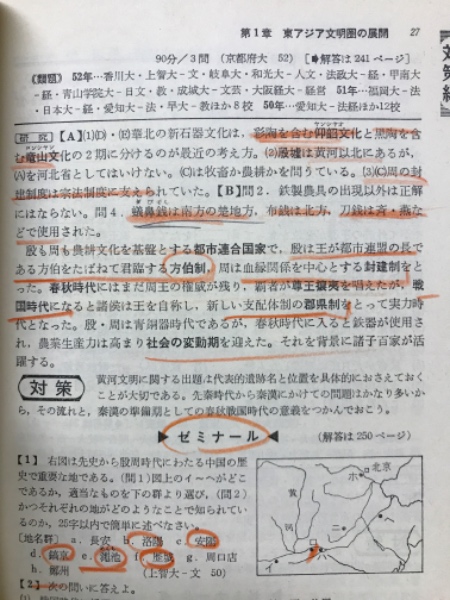 第1章 東アジア文明圏の展開 27
90分／3問 (京都府大 52) [➡解答は 241 ページ]
《類題》 52年…香川大・上智大－文・岐阜大・和光大－人文・法政大－経・甲南大
－経・青山学院大－日文・教・成城大－文芸・大阪経大－経営 51年…福岡大－法
・日本大－経・愛知大－法・早大－教ほか8校 50年…愛知大－法経ほか12校
研究 【A】(1)(D)・(E)華北の新石器文化は，彩陶を含む仰韶文化と黒陶を含
む竜山文化の2期に分けるのが最近の考え方。(2)殷墟は黄河以北にあるが，
(A)を河北省としてはいけない。(C)は牧畜か農耕かを問うている。(3)(C)周の封
建制度は宗法制度に支えられていた。【B】問2．鉄製農具の出現以外は正解
にはならない。問4．蟻鼻銭は南方の楚地方，布銭は北方，刀銭は斉・燕な
どで使用された。
殷も周も農耕文化を基盤とする都市連合国家で，殷は王が都市連盟の長で
ある方伯をたばねて君臨する方伯制，周は血縁関係を中心とする封建制をと
った。春秋時代にはまだ周王の権威が残り，覇者が尊王攘夷を唱えたが，戦
国時代になると諸侯は王を自称し，新しい支配体制の郡県制をとって実力時
代となった。殷・周は青銅器時代であるが，春秋時代に入ると鉄器が使用さ
れ，農業生産力は高まり社会の変動期を迎えた。それを背景に諸子百家が活
躍する。
対策 黄河文明に関する出題は代表的遺跡名と位置を具体的におさえておく
ことが大切である。先秦時代から秦漢にかけての問題はかなり多いか
ら，その流れと，秦漢の準備期としての春秋戦国時代の意義をつかんでおこう。
▶ゼミナール◀ (解答は 250 ページ)
【1】 右図は先史から殷周時代にわたる中国の歴
史で重要な地である。(問1)図上のイ〜ヘがどこ
であるか，適当なものを下の群より選び，(問2)
かつそれぞれの地がどのようなことで知られて
いるのか，25字以内で簡単に述べなさい。
[地名群] a．長安 b．洛陽 c．安陽
d．鎬京 e．澠池 f．歴城 g．周口店
h．鄭州 (上智大－文 50)
【2】 次の問いに答えよ。
北京
ホ
黄
河
ニ
ロ
イ
ハ